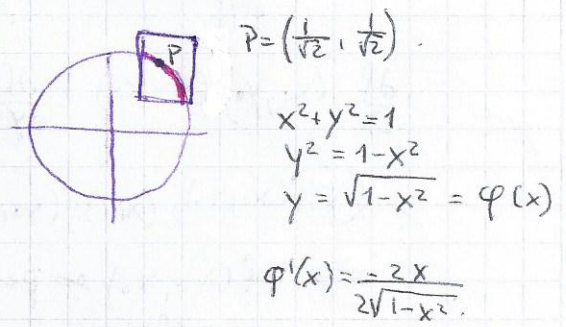 P
P = (1/√2, 1/√2).
x² + y² = 1
y² = 1 - x²
y = √(1 - x²) = φ(x)
φ'(x) = -2x / 2√(1 - x²).